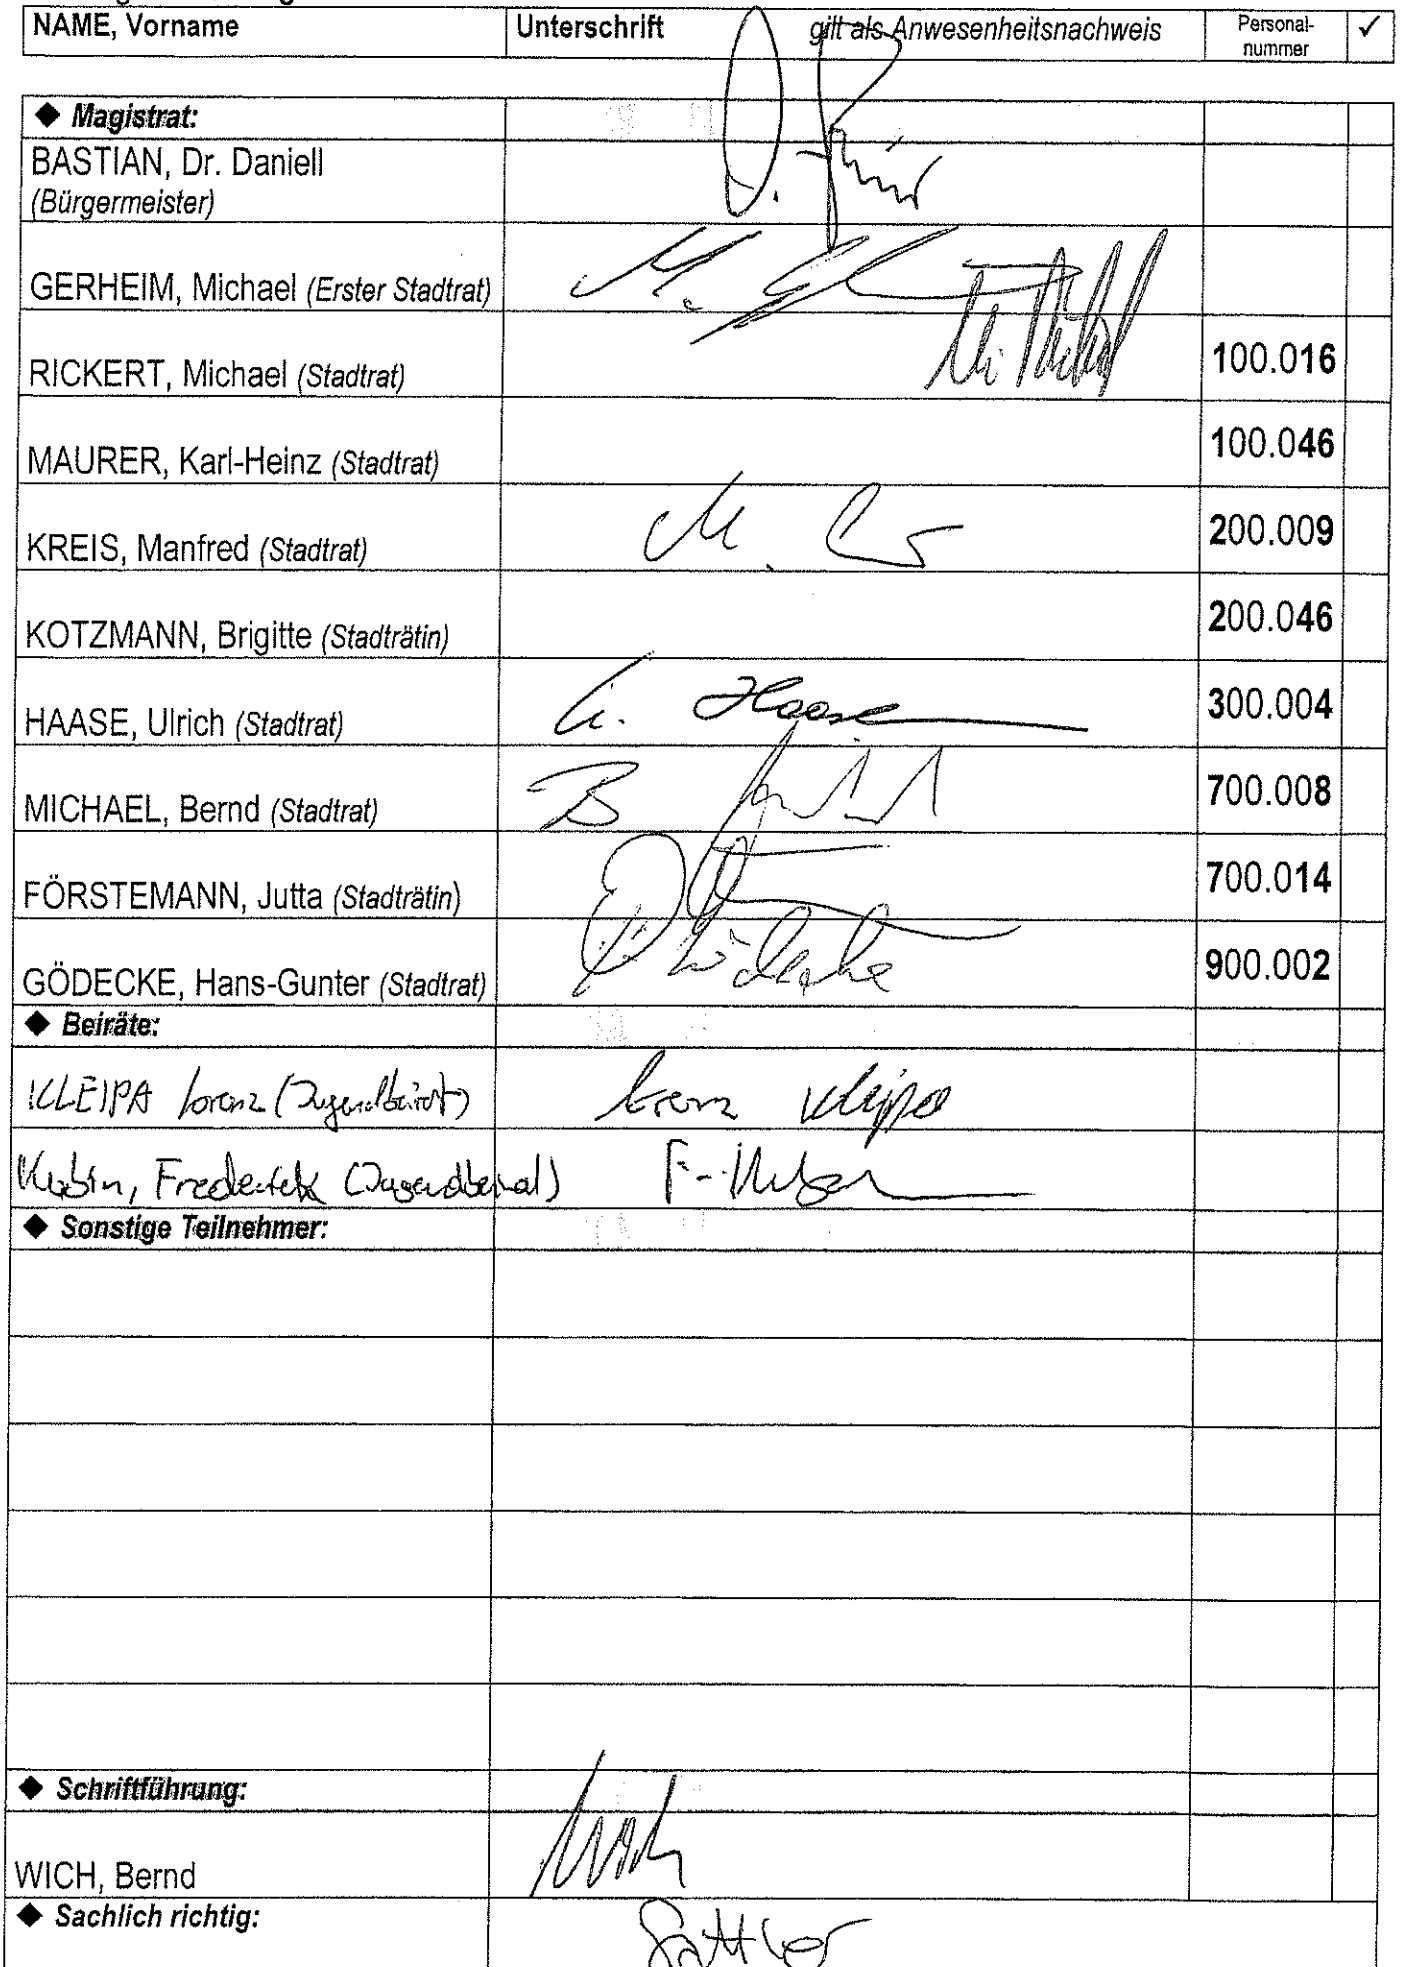 NAME, Vorname Unterschrift gilt als Anwesenheitsnachweis Personal-
nummer ✓
◆ Magistrat:
BASTIAN, Dr. Daniell
(Bürgermeister)
GERHEIM, Michael (Erster Stadtrat)
RICKERT, Michael (Stadtrat) 100.016
MAURER, Karl-Heinz (Stadtrat) 100.046
KREIS, Manfred (Stadtrat) 200.009
KOTZMANN, Brigitte (Stadträtin) 200.046
HAASE, Ulrich (Stadtrat) U. Haase 300.004
MICHAEL, Bernd (Stadtrat) 700.008
FÖRSTEMANN, Jutta (Stadträtin) 700.014
GÖDECKE, Hans-Gunter (Stadtrat) Gödecke 900.002
◆ Beiräte:
KLEIPA Lorenz (Jugendbeirat) Lorenz Kleipa
Kubin, Frederick (Jugendbeirat)
◆ Sonstige Teilnehmer:
◆ Schriftführung:
WICH, Bernd Wich
◆ Sachlich richtig: